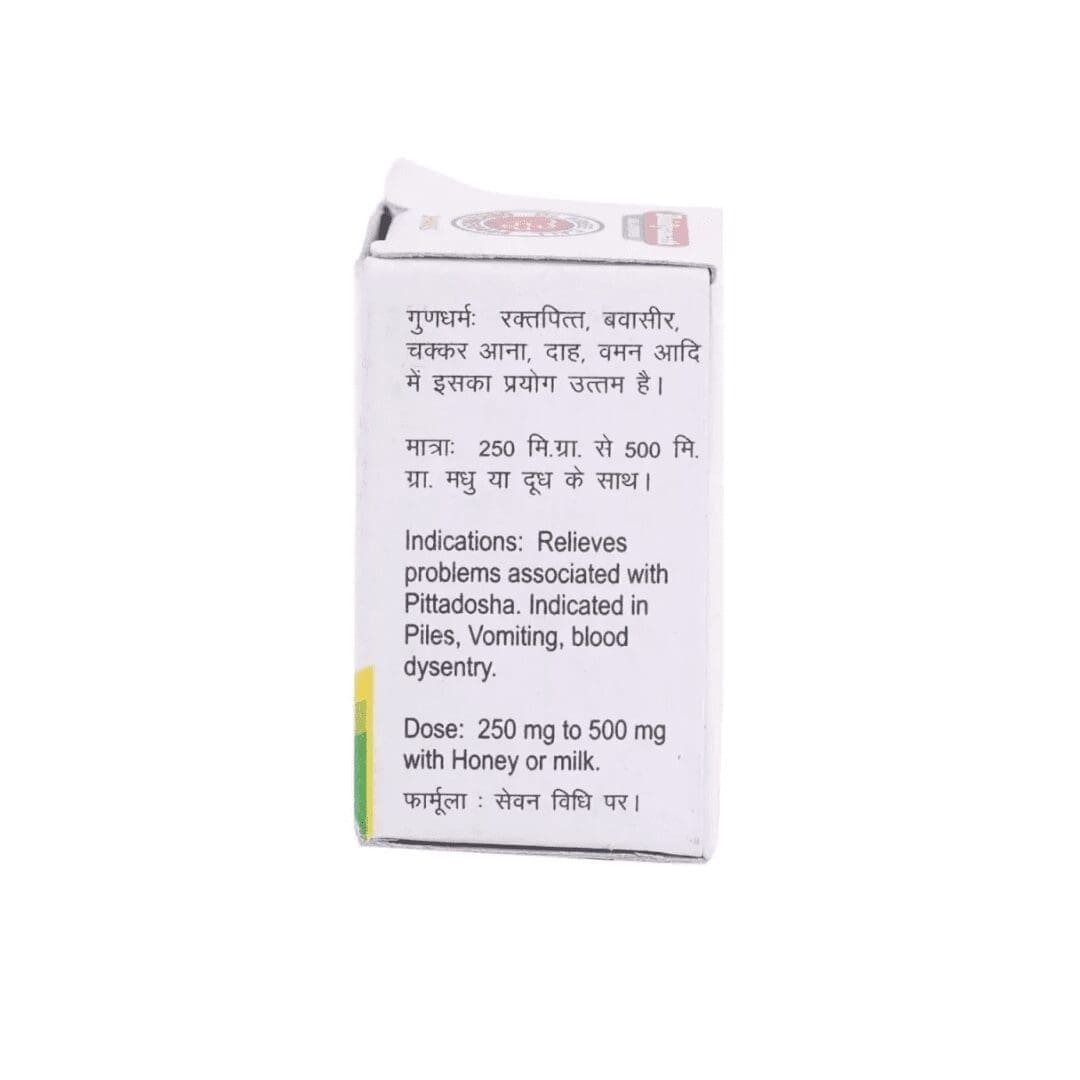 गुणधर्मः रक्तपित्त, बवासीर,
चक्कर आना, दाह, वमन आदि
में इसका प्रयोग उत्तम है।
मात्राः 250 मि.ग्रा. से 500 मि.
ग्रा. मधु या दूध के साथ।
Indications: Relieves
problems associated with
Pittadosha. Indicated in
Piles, Vomiting, blood
dysentry.
Dose: 250 mg to 500 mg
with Honey or milk.
फार्मूला : सेवन विधि पर।